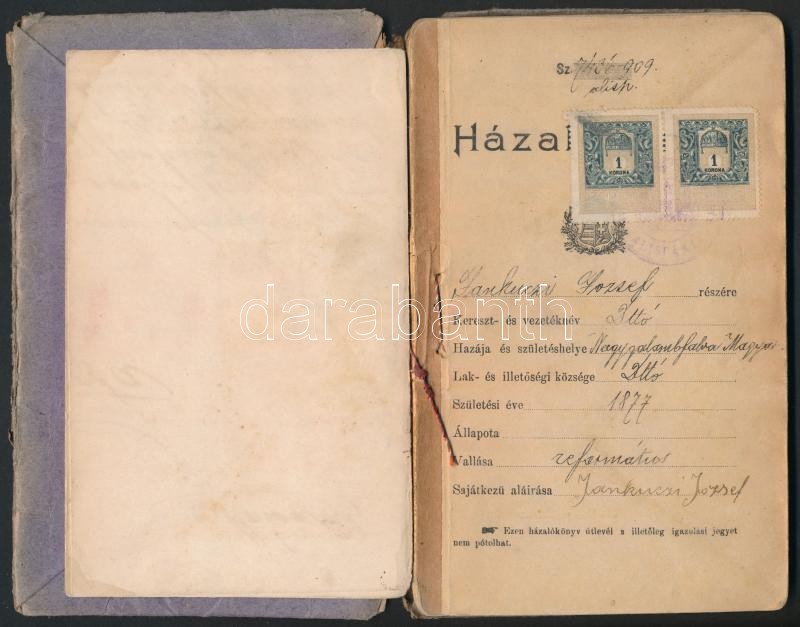 Sz. 7436-909.
alisp.
Háza
1
KORONA
1
KORONA
Jankuczi Jozsef részére
Kereszt- és vezetéknév Dttó
Hazája és születéshelye Nagygalambfalva Magyar
Lak- és illetőségi községe Dttó
Születési éve 1877
Állapota
Vallása református
Sajátkezű aláirása Jankuczi Jozsef
Ezen házalókönyv útlevél s illetőleg igazolási jegyet
nem pótolhat.
darabanth.com